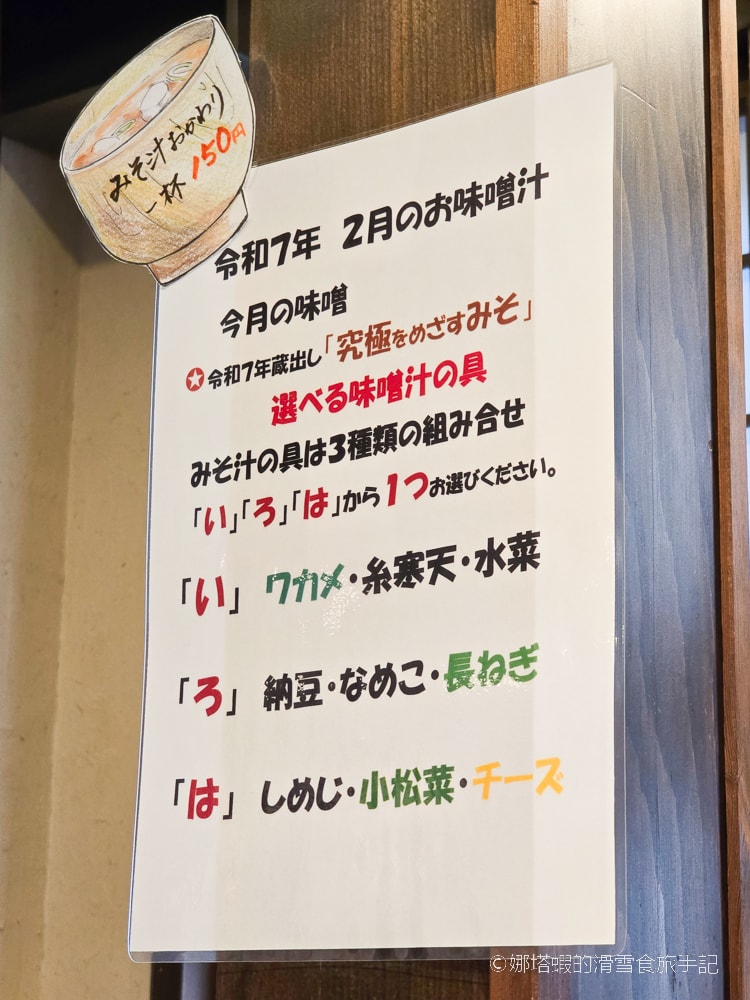 みそ汁おかわり
一杯 150円
令和7年 2月のお味噌汁
今月の味噌
令和7年蔵出し「究極をめざすみそ」
選べる味噌汁の具
みそ汁の具は3種類の組み合せ
「い」「ろ」「は」から1つお選びください。
「い」 ワカメ・糸寒天・水菜
「ろ」 納豆・なめこ・長ねぎ
「は」 しめじ・小松菜・チーズ
©娜塔蝦的滑雪食旅手記